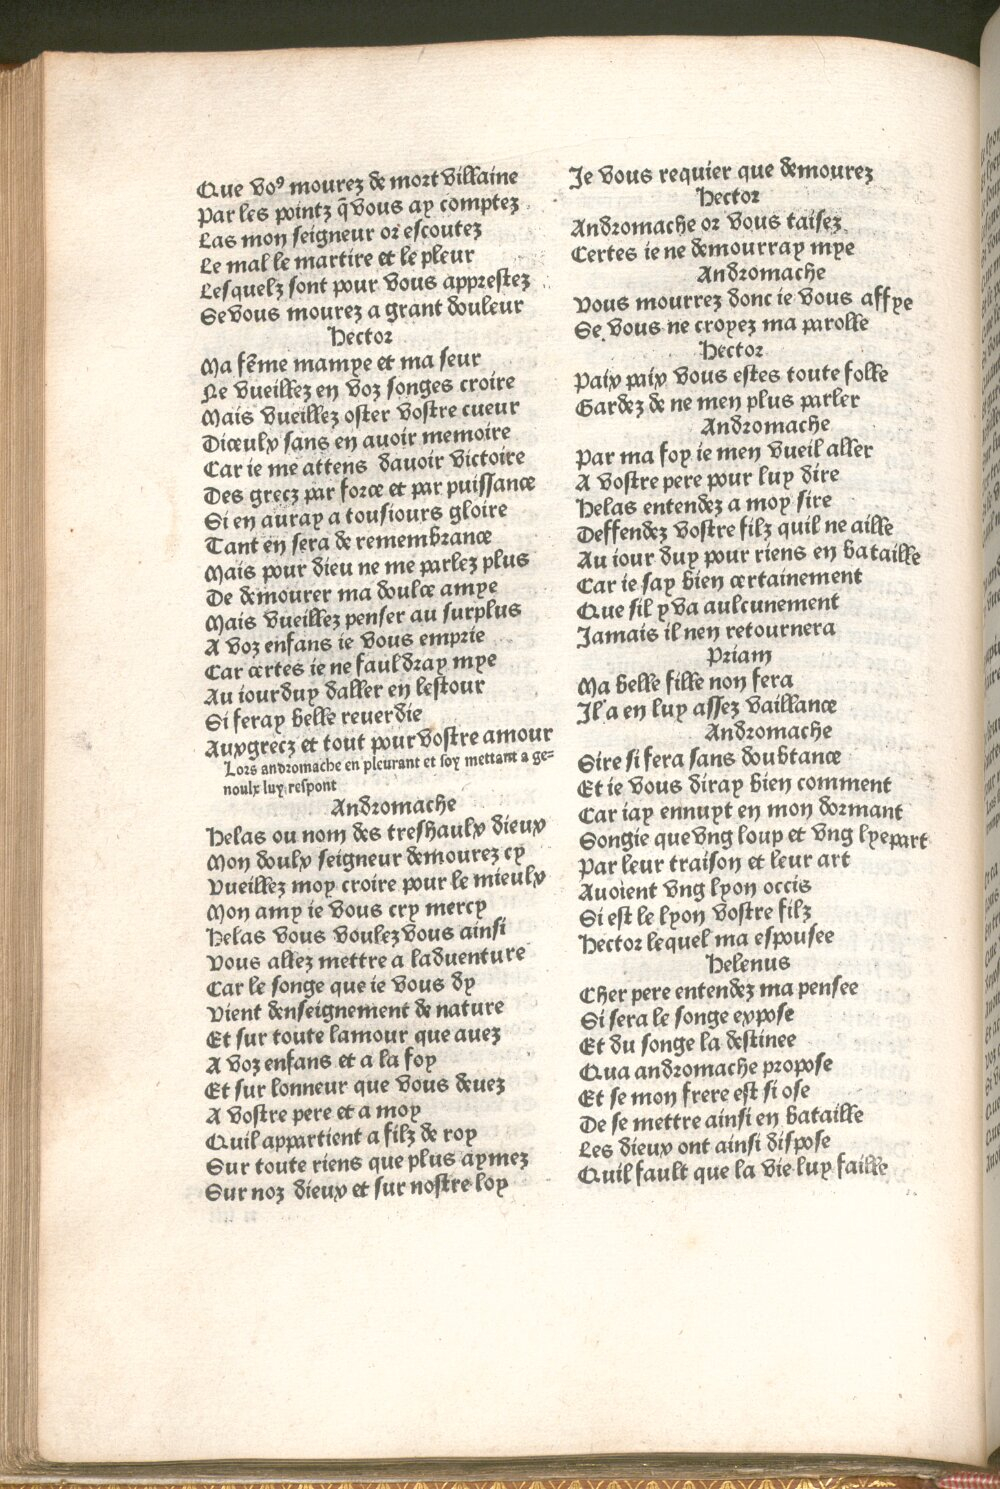 Que voꝰ mourez de mort villaine
Par les pointz q̃ vous ay comptez
Las mon seigneur or escoutez
Le mal le martire et le pleur
Lesquelz sont pour vous apprestez
Se vous mourez a grant douleur
Hector
Ma fẽme mamye et ma seur
Ne vueillez en voz songes croire
Mais vueillez oster vostre cueur
Diceulx sans en auoir memoire
Car ie me attens dauoir victoire
Des grecz par force et par puissance
Si en auray a tousiours gloire
Tant en sera de remembrance
Mais pour dieu ne me parlez plus
De demourer ma doulce amye
Mais vueillez penser au surplus
A voz enfans ie vous emprie
Car certes ie ne fauldray mye
Au iourduy daller en lestour
Si feray belle reuerdie
Aux grecz et tout pour vostre amour
Lors andromache en pleurant et soy mettant a ge=
noulx luy respont
Andromache
Helas ou nom des treshaulx dieux
Mon doulx seigneur demourez cy
Vueillez moy croire pour le mieulx
Mon amy ie vous cry mercy
Helas vous voulez vous ainsi
Vous allez mettre a laduenture
Car le songe que ie vous dy
Vient denseignement de nature
Et sur toute lamour que auez
A voz enfans et a la foy
Et sur lonneur que vous deuez
A vostre pere et a moy
Quil appartient a filz de roy
Sur toute riens que plus aymez
Sur noz dieux et sur nostre loy
Je vous requier que demourez
Hector
Andromache or vous taisez
Certes ie ne demourray mye
Andromache
Vous mourrez donc ie vous affye
Se vous ne croyez ma parolle
Hector
Paix paix vous estes toute folle
Gardez de ne men plus parler
Andromache
Par ma foy ie men vueil aller
A vostre pere pour luy dire
Helas entendez a moy sire
Deffendez vostre filz quil ne aille
Au iour duy pour riens en bataille
Car ie say bien certainement
Que sil y va aulcunement
Jamais il nen retournera
Priam
Ma belle fille non fera
Il a en luy assez vaillance
Andromache
Sire si fera sans doubtance
Et ie vous diray bien comment
Car iay ennuyt en mon dormant
Songie que vng loup et vng lyepart
Par leur traison et leur art
Auoient vng lyon occis
Si est le lyon vostre filz
Hector lequel ma espousee
Helenus
Cher pere entendez ma pensee
Si sera le songe expose
Et du songe la destinee
Qua andromache propose
Et se mon frere est si ose
De se mettre ainsi en bataille
Les dieux ont ainsi dispose
Quil fault que la vie luy faille